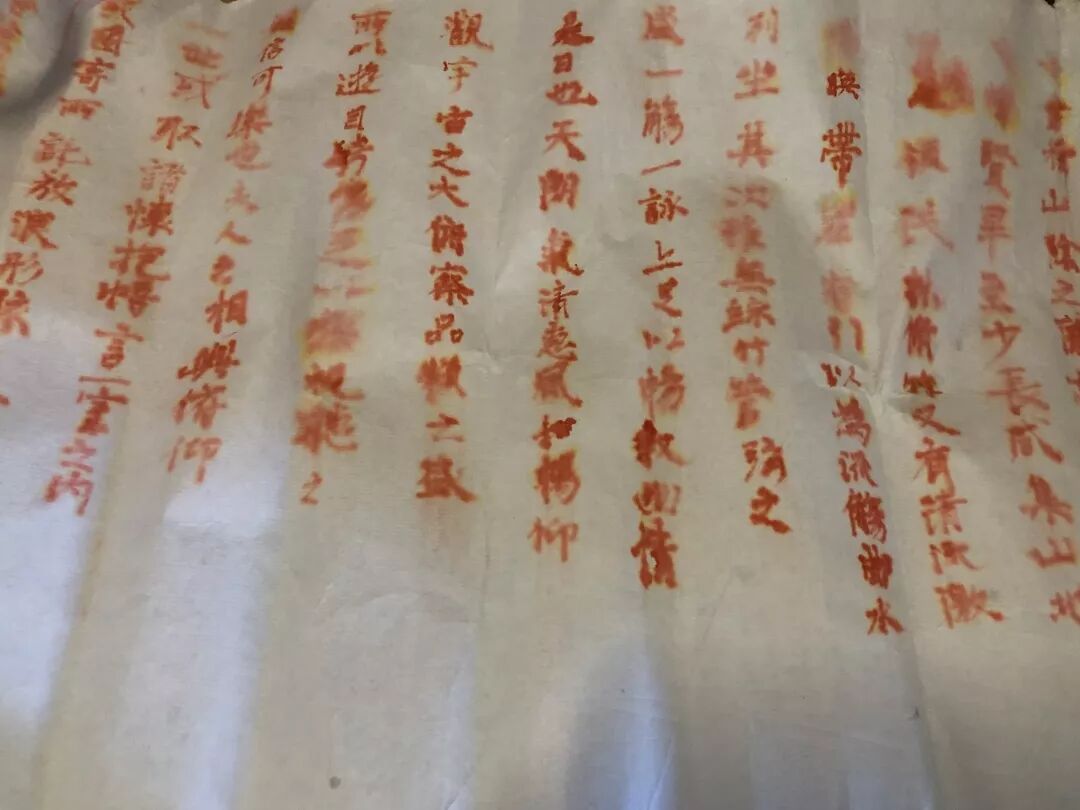 山陰之蘭
賢畢至少長咸集此地
領茂林脩竹又有清流激
暎帶左右引以為流觴曲水
列坐其次雖無絲竹管弦之
盛一觴一詠亦足以暢敘幽情
是日也天朗氣清惠風和暢仰
觀宇宙之大俯察品類之盛
所以遊目騁懷足以極視聽之
娛信可樂也夫人之相與俯仰
一世或取諸懷抱悟言一室之內
或因寄所託放浪形骸